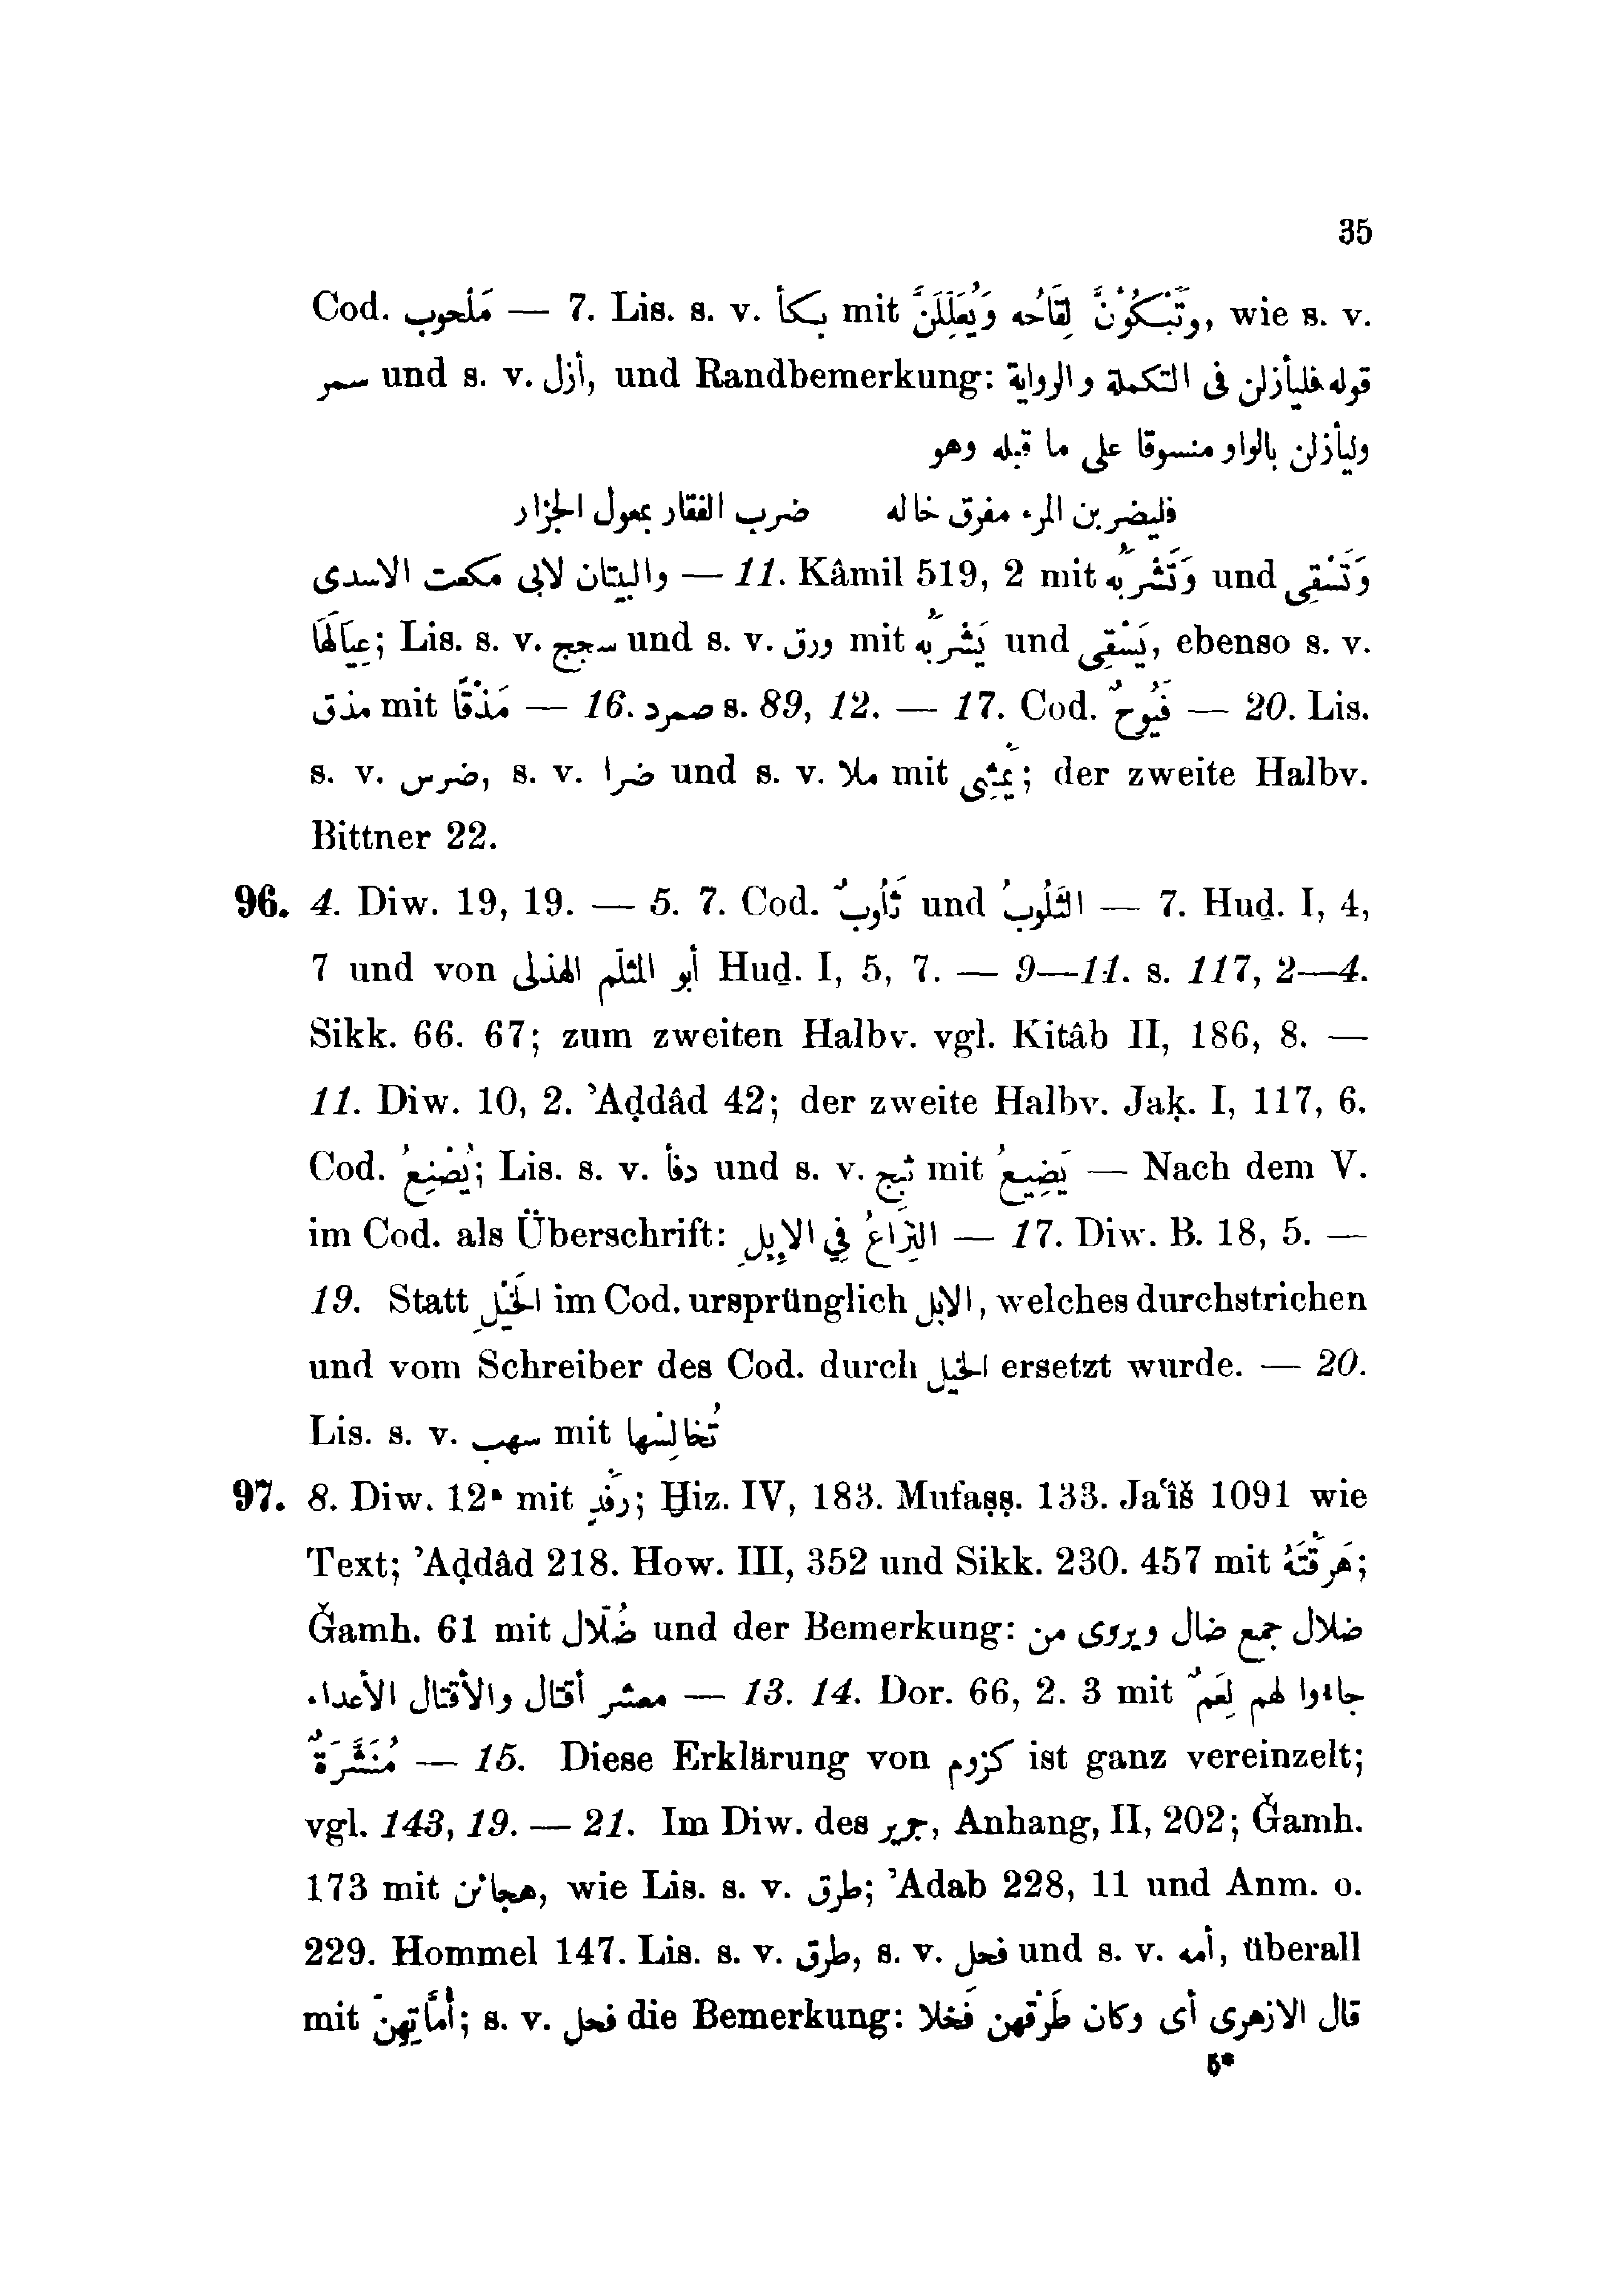 35
Cod. مَلحوب — 7. Lis. s. v. بكأ mit وَتَبْكُوُنَّ لِقَاحُه وَيُعَلِّلَنَّ, wie s. v.
سمر und s. v. أزل, und Randbemerkung: قوله فليأزلن فى التكملة والرواية
وليأزلن بالواو منسوقا على ما قبله وهو
فليضربن المرء مفرق خاله ضرب الفقار بمعول الجزار
والبيتان لابى مكعت الاسدى — 11. Kâmil 519, 2 mit وَتَشْرَبُه und وَتَسْقِى
عِيَالَهَا; Lis. s. v. سجج und s. v. ورق mit يَشْرَبُه und يَسْقِى, ebenso s. v.
مذق mit مَذْقًا — 16. صمرد s. 89, 12. — 17. Cod. فَيُوحٌ — 20. Lis.
s. v. ضرس, s. v. ضرا und s. v. ملا mit يَمْشِى; der zweite Halbv.
Bittner 22.
96. 4. Diw. 19, 19. — 5. 7. Cod. ثَاُوبٌ und الثَلُوبُ — 7. Huḏ. I, 4,
7 und von أبو المثلّم الهذلى Huḏ. I, 5, 7. — 9—11. s. 117, 2—4.
Sikk. 66. 67; zum zweiten Halbv. vgl. Kitâb II, 186, 8. —
11. Diw. 10, 2. ’Aḍdâd 42; der zweite Halbv. Jaḳ. I, 117, 6.
Cod. يُضْنِعُ; Lis. s. v. دفأ und s. v. ثبج mit يَضِيعُ — Nach dem V.
im Cod. als Überschrift: النِزَاعُ فِي الإِبِلِ — 17. Diw. B. 18, 5. —
19. Statt الخَيْلِ im Cod. ursprünglich الابل, welches durchstrichen
und vom Schreiber des Cod. durch الخيل ersetzt wurde. — 20.
Lis. s. v. سهب mit تُخالِسُها
97. 8. Diw. 12ᵃ mit رفْدٍ; Ḫiz. IV, 183. Mufaṣṣ. 133. Ja‘îš 1091 wie
Text; ’Aḍdâd 218. How. III, 352 und Sikk. 230. 457 mit هَرَقْتَهُ;
Ǧamh. 61 mit ضُلّال und der Bemerkung: ضلال جمع ضال ويروى من
معشر أقتال والأقتال الأعداء — 13. 14. Dor. 66, 2. 3 mit جاءوا لهم نَعَمٌ
مُنَشَّرَةٌ — 15. Diese Erklärung von كزوم ist ganz vereinzelt;
vgl. 143, 19. — 21. Im Diw. des جرير, Anhang, II, 202; Ǧamh.
173 mit هجائن, wie Lis. s. v. طرق; ’Adab 228, 11 und Anm. o.
229. Hommel 147. Lis. s. v. طرق, s. v. فحل und s. v. أمه, überall
mit أُمّاتِهِنّ; s. v. فحل die Bemerkung: قال الازهرى أى وكان طَرْقهن فَحْلا
5*